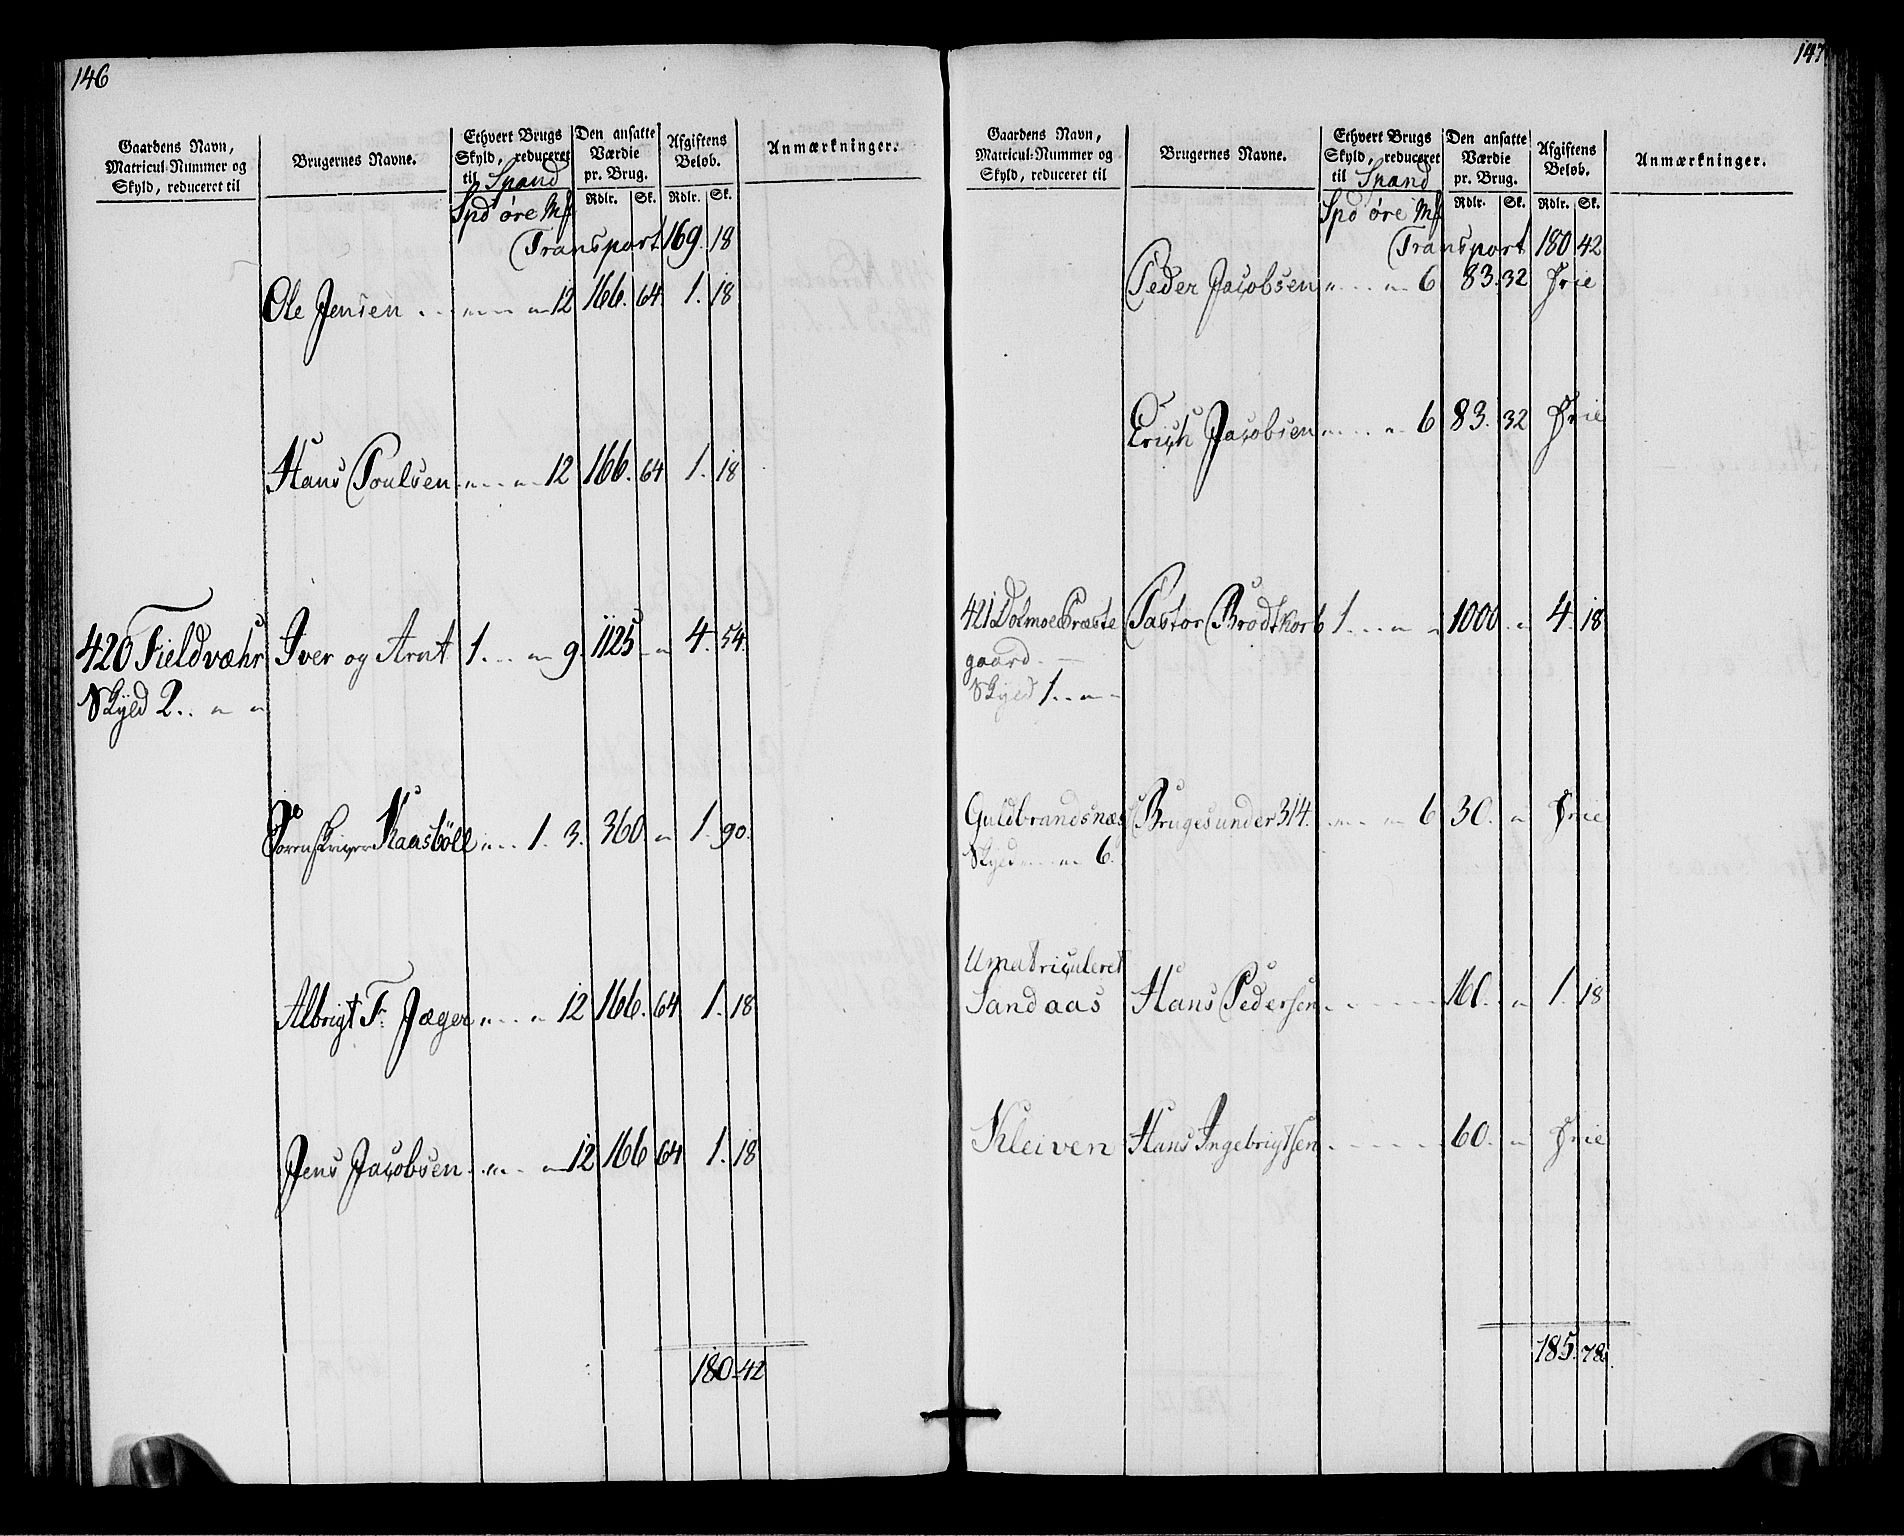 146
Gaardens Navn, Matricul-Nummer og Skyld, reduceret til
Brugernes Navne.
Ethvert Brugs Skyld, reduceret til Spand
Den ansatte Værdie pr. Brug.
Afgiftens Beløb.
Anmærkninger.
Spd øre Mk Rdlr. Sk. Rdlr. Sk.
Transport 169. 18
Ole Jensen . . „ „ „ 12 166. 64 1. 18
Hans Poulsen „ . . „ 12 166. 64 1. 18
420 Fieldvæhr Iver og Arnt 1. . . „ 9. 1125 „ 4. 54.
Skyld 2. . „ „
Sorenskriver Kaasböll „ . . 1. 3. 360 „ 1. 90.
Albrigt F. Jæger „ . . „ 12 166. 64 1. 18
Jens Jacobsen . „ . . „ 12 166 64 1. 18
180. 42
147
Gaardens Navn, Matricul-Nummer og Skyld, reduceret til
Brugernes Navne.
Ethvert Brugs Skyld, reduceret til Spand
Den ansatte Værdie pr. Brug.
Afgiftens Beløb.
Anmærkninger.
Spd øre Mk Rdlr. Sk. Rdlr. Sk.
Transport 180 42
Peder Jacobsen „ . . . „ 6 83. 32 Frie
Erich Jacobsen „ . . . „ 6 83. 32 Frie
421 Dolmoe Præste Pastor Brodtkorb 1. . . „ „ 1000 „ 4. 18
gaard. —
Skyld 1. . „ „
Guldbrandsnæs Bruges under 314. . . . „ 6 30. „ Frie
Skyld . . „ „ 6.
Umatriculeret
Sandaas Hans Pedersen . . . . 160. „ 1. 18
Kleiven Hans Ingebrigtsen . . . . 60. „ Frie
185. 78.